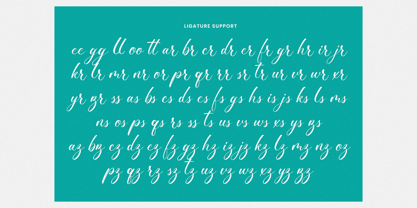 LIGATURE SUPPORT
ee gg ll oo tt ar br cr dr er fr gr hr ir jr
kr lr mr nr or pr qr rr sr tr ur vr wr xr
yr zr ss as bs cs ds es fs gs hs is js ks ls ms
ns os ps qs rs ss ts us vs ws xs ys zs
az bz cz dz ez fz gz hz iz jz kz lz mz nz oz
pz qz rz sz tz uz vz wz xz yz zz